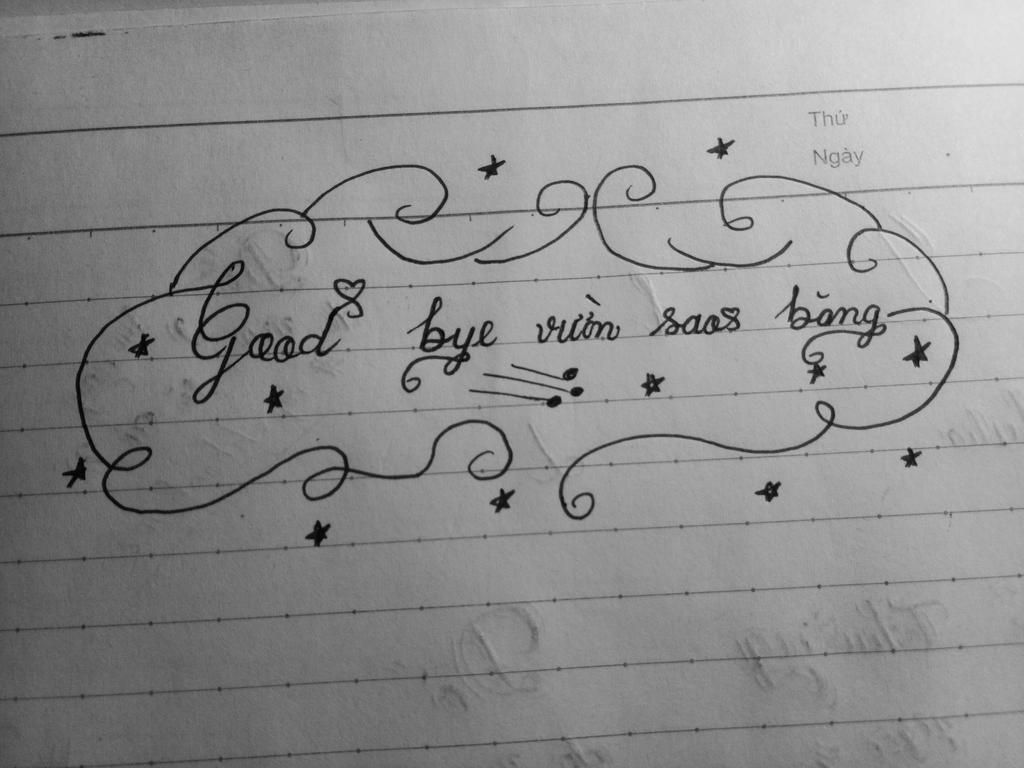 Thứ
Ngày
Good bye vườn saos băng